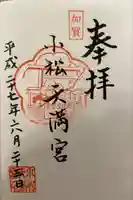 奉拝
加賀
小松天満宮
平成二十七年六月二十五日